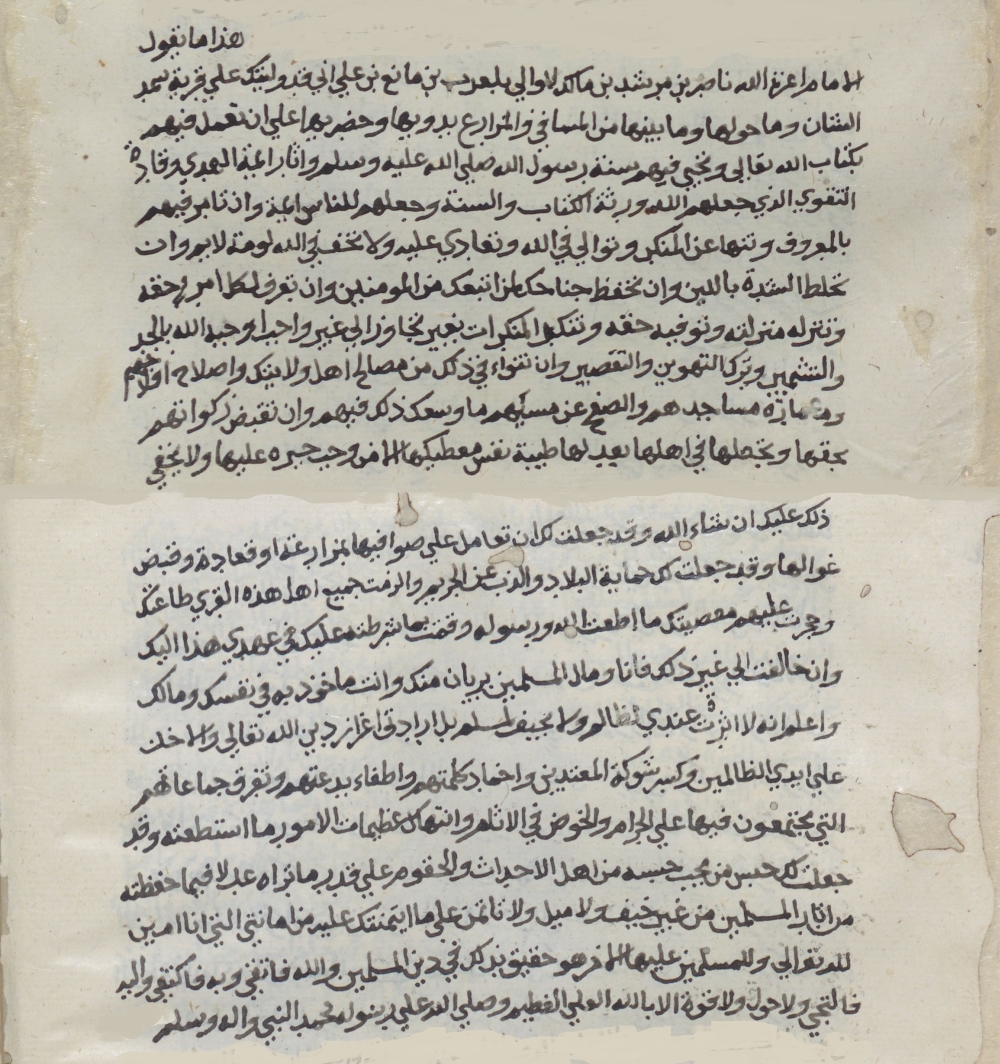 هذا ما يقول
الامام اعزه الله ناصر بن مرشد بن مالك لاوالي بلعرب بن مانع بن علي اني قد وليتك علي قرية سمد
الشان وما حولها وما بينها من المسافي والمزارع بدويها وحضريها علي ان تعمل فيهم
بكتاب الله تعالي وتحيي فيهم سنة رسول الله صلي الله عليه وسلم واثار ائمة الهدي وقادة
التقوي الذي جعلهم الله ورثة الكتاب والسنة وجعلهم للناس ائمة وان تامر فيهم
بالمعروف وتنها عن المنكر وتوالي في الله وتعادي عليه ولا تخف في الله لومة لايم وان
تخلط الشدة باللين وان تخفظ جناحك لمن اتبعك من المومنين وان تعرف لكل امر حقه
وتنزله منزلته وتوفيه حقه وتنكل المنكرات بغير تجاوز الي غير واحبا وجبه الله بالجد
والتشمير وترك التهوين والتقصير وان تتواء في ذلك من مصالح اهل ولايتك واصلاح اولادهم
وعمارة مساجدهم والصفح عن مسيهم ما وسعك ذلك فيهم وان تقبض زكواتهم
بحقها وتجعلها في اهلها بعد لها طيبة نفس معطيكها الا من وجب جبره عليها ولا يخفي
ذلك عليك ان شاء الله وقد جعلت لك ان تعامل علي صوافيها بمزارعة او قعادة وقبض
غوالها وقد جعلت لك حماية البلاد والذب عن الحريم والزمت جميع اهل هذه القري طاعتك
وحجرت عليهم معصيتك ما اطعت الله ورسوله وقمت بما شرطته عليك في عهدي هذا اليك
وان خالفت الي غير ذلك فانا ومال المسلمين بريان منك وانت ماخوذ به في نفسك ومالك
واعلم انه لا اثرة عندي لظالم ولا لحيف لمسلم بل ارادتي اعزاز دين الله تعالي والاخذ
علي ايدي الظالمين وكسر شوكة المعتدين واخماد كلمتهم واطفاء بدعتهم وتفرق جماعاتهم
التي يجتمعون فيها علي الحرام والخوض في الاثام وانتهاك عظيمات الامور ما استطعته وقد
جعلت لك حبس من يجب حبسه من اهل الاحداث والحقوق علي قدر ما تراه عدلا فيما حفظته
من اثار المسلمين من غير حيف ولا ميل ولا تاتمن علي ما ايتمنتك عليه من امانتي التي انا امين
لله تعالي وللمسلمين عليها الا من هو حقيق بذلك في دين المسلمين والله فاتقي وبه فاكتفي واليه
فالتجي ولا حول ولا قوة الا بالله العلي العظيم وصلي الله علي رسوله محمد النبي واله وسلم